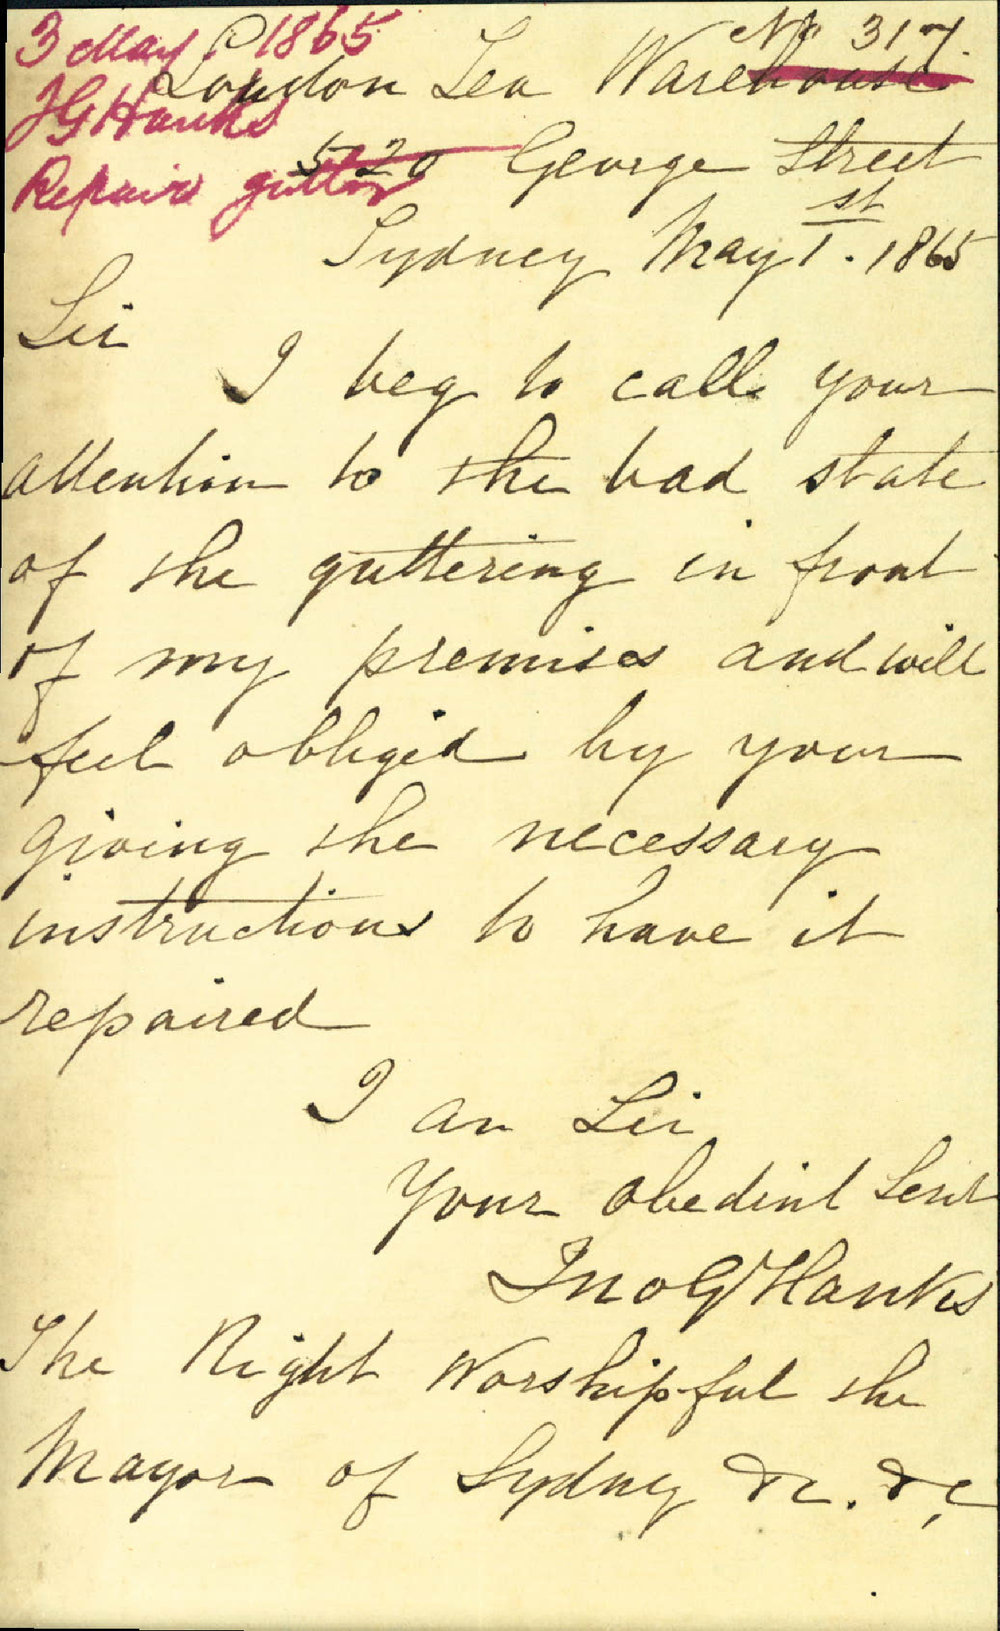 3 May 1865 No 317
London Tea Warehouse
J G Hanks
520 George Street
Repair gutter
Sydney May 1st. 1865
Sir
I beg to call your
attention to the bad state
of the guttering in front
of my premises and will
feel obliged by your
giving the necessary
instructions to have it
repaired
I am Sir
Your obedint Servt
Jno G Hanks
The Right Worshipful the
Mayor of Sydney &c. &c